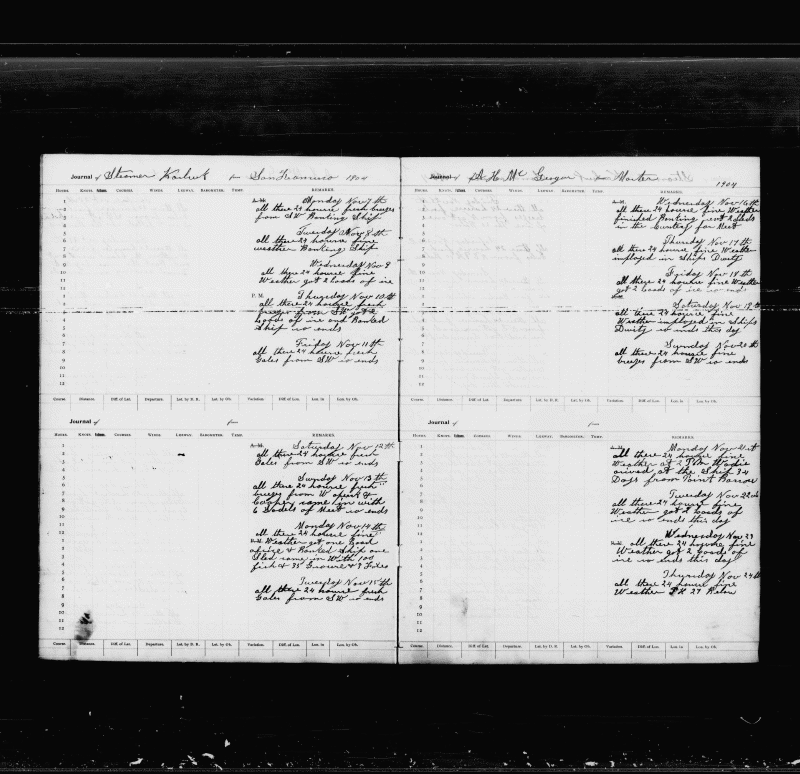 Journal of Steamer Karluk from San Francisco 1904
HOURS. KNOTS. Fathoms. COURSES. WINDS. LEEWAY. BAROMETER. TEMP. REMARKS.
A.M. Monday Nov 7th
all these 24 hourse fresh breezes
from SW Banking Ship
Tuesday Nov 8th
all these 24 hourse fine
weather Banking Ship
Wednesday Nov 9
all these 24 hourse fine
Weather got 2 loads of ice
P.M. Thursday Nov 10th
all these 24 hourse fresh
breezes from SW got 2
loads of ice and Banked
Ship so ends
Friday Nov 11th
all these 24 hourse fresh
Gales from SW so ends
Course. Distance. Diff. of Lat. Departure. Lat. by D. R. Lat. by Ob. Variation. Diff. of Lon. Lon. in Lon. by Ob.
Journal of from
HOURS. KNOTS. Fathoms. COURSES. WINDS. LEEWAY. BAROMETER. TEMP. REMARKS.
A.M. Saturday Nov 12th
all these 24 hourse fresh
Gales from SW so ends
Sunday Nov 13th
all these 24 hourse fresh
breezes from W &
Cooper came in with
6 Sadels of Meet so ends
Monday Nov 14th
all these 24 hourse fine
P.M. Weather got one load
of ice & Banked Ship one
Sled came in With 100
fish & 35 Grouse & 9 Foxes
Tuesday Nov 15th
all these 24 hourse fresh
Gales from SW so ends
Course. Distance. Diff. of Lat. Departure. Lat. by D. R. Lat. by Ob. Variation. Diff. of Lon. Lon. in Lon. by Ob.
Journal of S. H. Mc Gregor Master
1904
HOURS. KNOTS. Fathoms. COURSES. WINDS. LEEWAY. BAROMETER. TEMP. REMARKS.
A.M. Wednesday Nov 16th
all these 24 hourse fine Weather
finished Banking sent 2 Sleds
in the Cuntry for Meet
Thursday Nov 17th
all these 24 hourse fine Weather
imployed in Ships Duity
Friday Nov 18th
all these 24 hourse fine Weather
got 2 loads of ice
Saturday Nov 19th
all these 24 hourse fine
Weather imployed in Ships
Duity so ends this day
Sunday Nov 20th
all these 24 hourse fine
breezes from SW so ends
Course. Distance. Diff. of Lat. Departure. Lat. by D. R. Lat. by Ob. Variation. Diff. of Lon. Lon. in Lon. by Ob.
Journal of from
HOURS. KNOTS. Fathoms. COURSES. WINDS. LEEWAY. BAROMETER. TEMP. REMARKS.
A.M. Monday Nov 21st
all these 24 hourse fine
Weather at 2 P.M.
arived at the Ship 34
Days from Point Barrow
Tuesday Nov 22nd
all these 24 hourse fine
Weather got 2 loads of
ice so ends this day
Wednesday Nov 23
P.M. all these 24 hourse fine
Weather got 2 loads of
ice so ends this day
Thursday Nov 24th
all these 24 hourse fine
Weather 27 Below
Course. Distance. Diff. of Lat. Departure. Lat. by D. R. Lat. by Ob. Variation. Diff. of Lon. Lon. in Lon. by Ob.